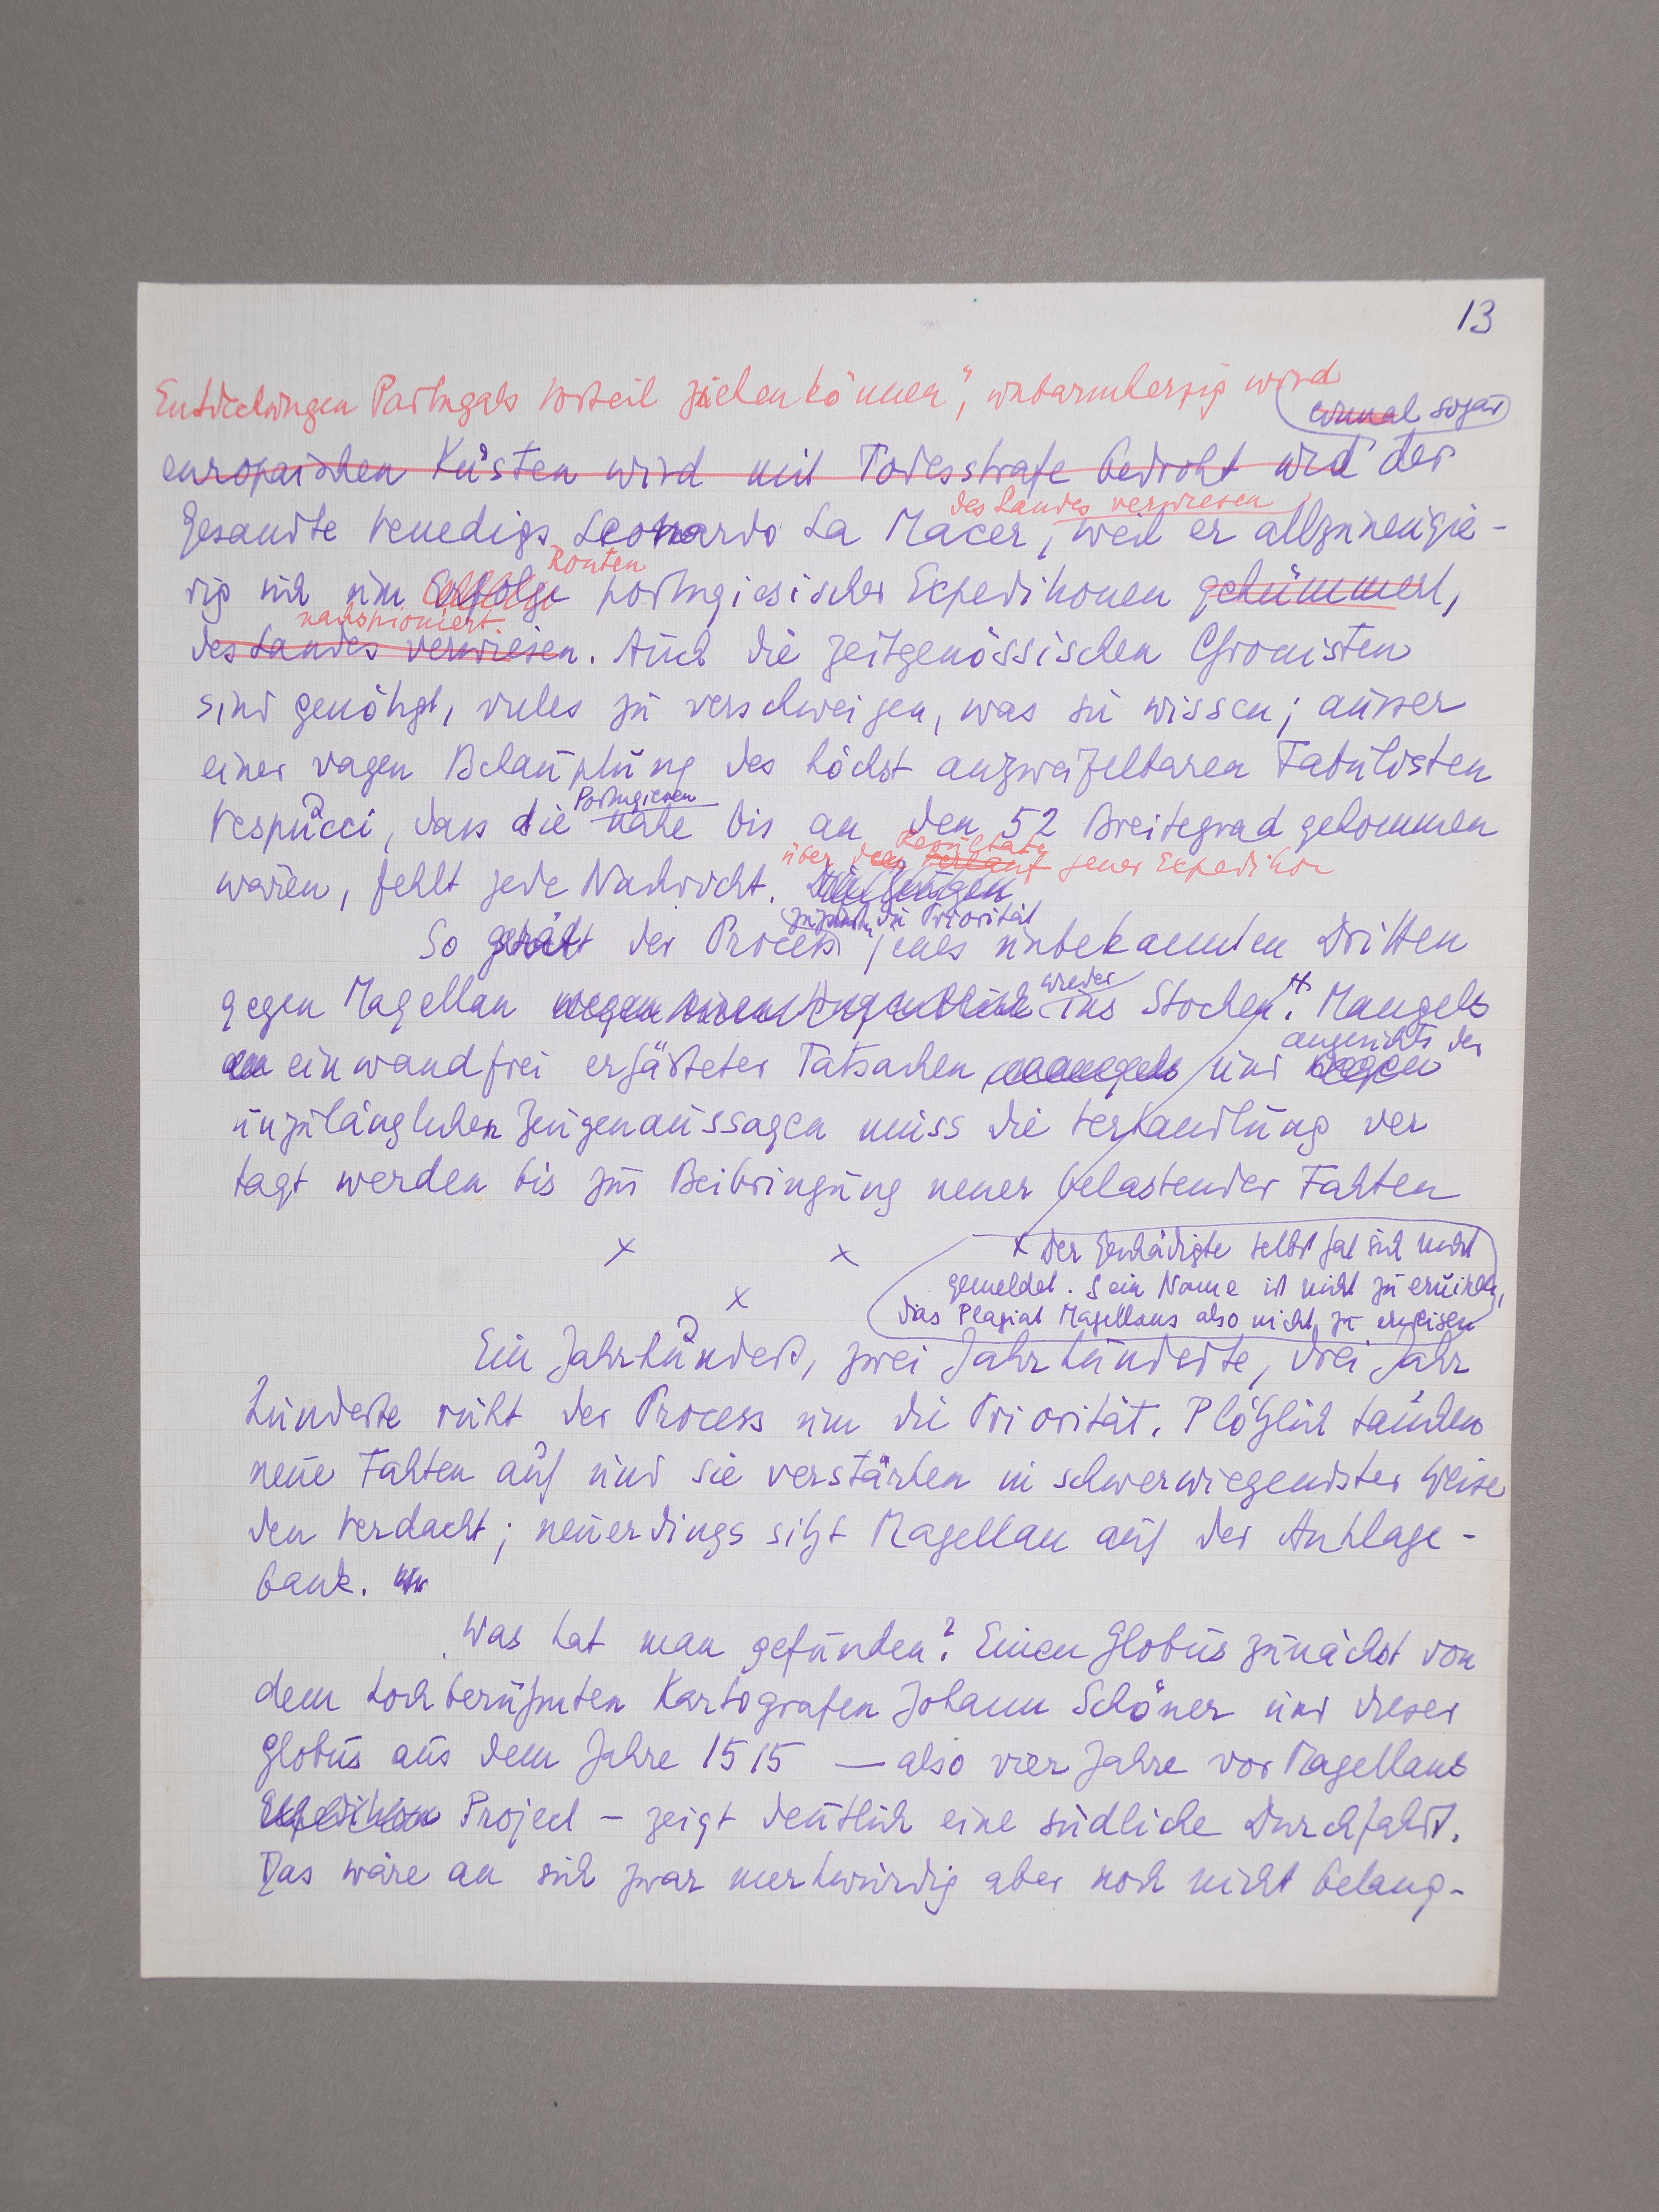 13
Entdeckungen Portugals Vorteil ziehen können", unbarmherzig wird
einmal sogar
europaischen Küsten wird mit Todesstrafe bedroht und der
des Landes verwiesen
Gesandte Venedigs Leonardo La Macer, weil er allzuneugie-
Routen
rig sich um Erfolge portugiesischer Expeditionen gekümmert,
nachspioniert
des Landes verwiesen. Auch die zeitgenössischen Chronisten
sind genötigt, vieles zu verschweigen, was sie wissen; ausser
einer vagen Behauptung des höchst anzweifelbaren Fabulisten
Portugiesen
Vespucci, dass die nahe bis an den 52 Breitegrad gekommen
über der Resultate Verlauf jener Expedition
wären, fehlt jede Nachricht.
zu die Priorität
So gerät der Process jenes unbekannten Dritten
wieder
gegen Magellan wegen ins Stocken. x Mangels
angesichts der
an einwandfrei erhärteter Tatsachen mangels und wegen
unzulänglichen Zeugenaussagen muss die Verhandlung ver
tagt werden bis zur Beibringung neuer belastender Fakten
x x
x
x Der Geschädigte selbst hat sich nicht
gemeldet. Sein Name ist nicht zu eruiren,
das Plagiat Magellans also nicht zu erweisen
Ein Jahrhundert, zwei Jahrhunderte, drei Jahr
hunderte ruht der Process um die Priorität. Plötzlich tauchen
neue Fakten auf und sie verstärken in schwerwiegendster Weise
den Verdacht; neuerdings sitzt Magellan auf der Anklage-
bank.
Was hat man gefunden? Einen Globus zunächst von
dem hochberühmten Kartografen Johann Schöner und dieser
Globus aus dem Jahre 1515 — also vier Jahre vor Magellans
Expedition Project – zeigt deutlich eine südliche Durchfahrt.
Das wäre an sich zwar merkwürdig aber noch nicht belang-